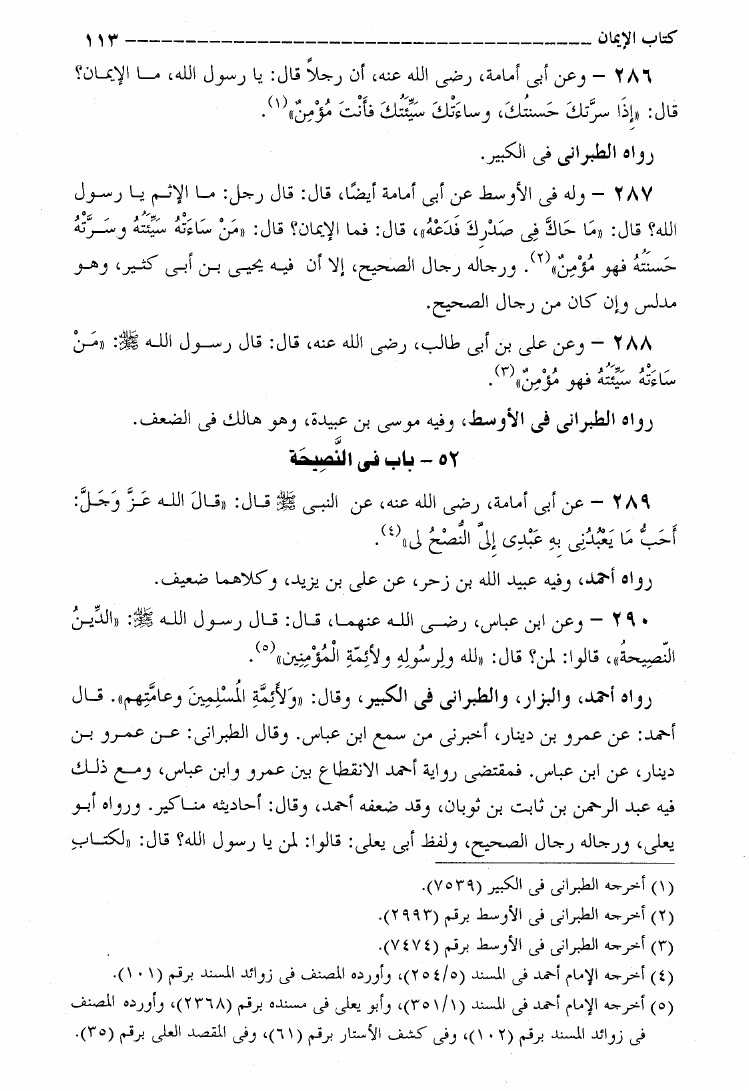 كتاب الإيمان ــــــــــــــــــــــــــــــــــــــــ ١١٣
٢٨٦ – وعن أبى أمامة، رضى الله عنه، أن رجلاً قال: يا رسول الله، مـا الإيمـان؟
قال: «إِذَا سرَّتكَ حَسنتُكَ، وساءَتْكَ سَيِّئَتُكَ فأَنْتَ مُؤْمِنٌ»(١).
رواه الطبرانى فى الكبير.
٢٨٧ – وله فى الأوسط عن أبى أمامة أيضًا، قال: قال رجل: مـا الإثـم يـا رسـول
الله؟ قال: «مَا حَاكَّ فِى صَدْرِكَ فَدَعْهُ»، قال: فما الإيمان؟ قال: «مَنْ سَاءَتْهُ سَيِّئَتُهُ وسَـرَّتْهُ
حَسَنَتُهُ فهو مُؤْمِنٌ»(٢). ورجاله رجال الصحيح، إلا أن فيـه يحيـى بـن أبـى كثـير، وهـو
مدلس وإن كان من رجال الصحيح.
٢٨٨ – وعن على بن أبى طالب، رضى الله عنه، قال: قال رسـول اللـه ﷺ: «مَـنْ
سَاءَتْهُ سَيِّئَتُهُ فهو مُؤْمِنٌ»(٣).
رواه الطبرانى فى الأوسط، وفيه موسى بن عبيدة، وهو هالك فى الضعف.
٥٢ – باب فى النَّصِيحَة
٢٨٩ – عن أبى أمامة، رضى الله عنه، عن النبـى ﷺ قـال: «قـالَ اللـه عَـزَّ وَجَـلَّ:
أَحَبُّ مَا يَعْبُدُنِى بِهِ عَبْدِى إِلىَّ النُّصْحُ لى»(٤).
رواه أحمد، وفيه عبيد الله بن زحر، عن على بن يزيد، وكلاهما ضعيف.
٢٩٠ – وعن ابن عباس، رضـى اللـه عنهمـا، قـال: قـال رسـول اللـه ﷺ: «الدِّيـنُ
النَّصِيحةُ»، قالوا: لمن؟ قال: «لله ولِرسُولِهِ ولأئِمَّةِ الْمُؤْمِنِين»(٥).
رواه أحمد، والبزار، والطبرانى فى الكبير، وقال: «وَلأَئِمَّةِ الْمُسْلِمِينَ وعامَّتِهِم». قـال
أحمد: عن عمرو بن دينار، أخبرنى من سمع ابن عباس. وقال الطبرانى: عـن عمـرو بـن
دينار، عن ابن عباس. فمقتضى رواية أحمد الانقطاع بين عمرو وابن عباس، ومـع ذلـك
فيه عبد الرحمن بن ثابت بن ثوبان، وقد ضعفه أحمد، وقال: أحاديثه منـاكير. ورواه أبـو
يعلى، ورجاله رجال الصحيح، ولفظ أبى يعلى: قالوا: لمن يا رسول الله؟ قال: «لكتـابِ
(١) أخرجه الطبرانى فى الكبير (٧٥٣٩).
(٢) أخرجه الطبرانى فى الأوسط برقم (٢٩٩٣).
(٣) أخرجه الطبرانى فى الأوسط برقم (٧٤٧٤).
(٤) أخرجه الإمام أحمد فى المسند (٢٥٤/٥)، وأورده المصنف فى زوائد المسند برقم (١٠١).
(٥) أخرجه الإمام أحمد فى المسند (٣٥١/١)، وأبو يعلى فى مسنده برقم (٢٣٦٨)، وأورده المصنف
فى زوائد المسند برقم (١٠٢)، وفى كشف الأستار برقم (٦١)، وفى المقصد العلى برقم (٣٥).